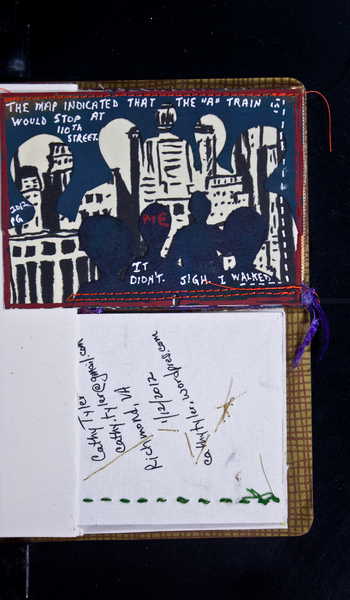 THE MAP INDICATED THAT THE "A" TRAIN
WOULD STOP AT
110th
STREET.
2012
PG
ME
IT
DIDN'T. SIGH. I WALKED.
Cathy Tyler
cathy.tyler@gmail.com
Richmond, VA
1/12/2012
cathytyler.wordpres.com